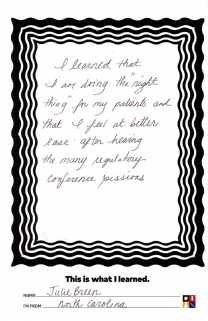 I learned that
I am doing the "right
thing" for my patients and
that I feel at better
ease after hearing
the many regulatory
conference sessions
This is what I learned.
NAME Julie Breen
I'M FROM North Carolina